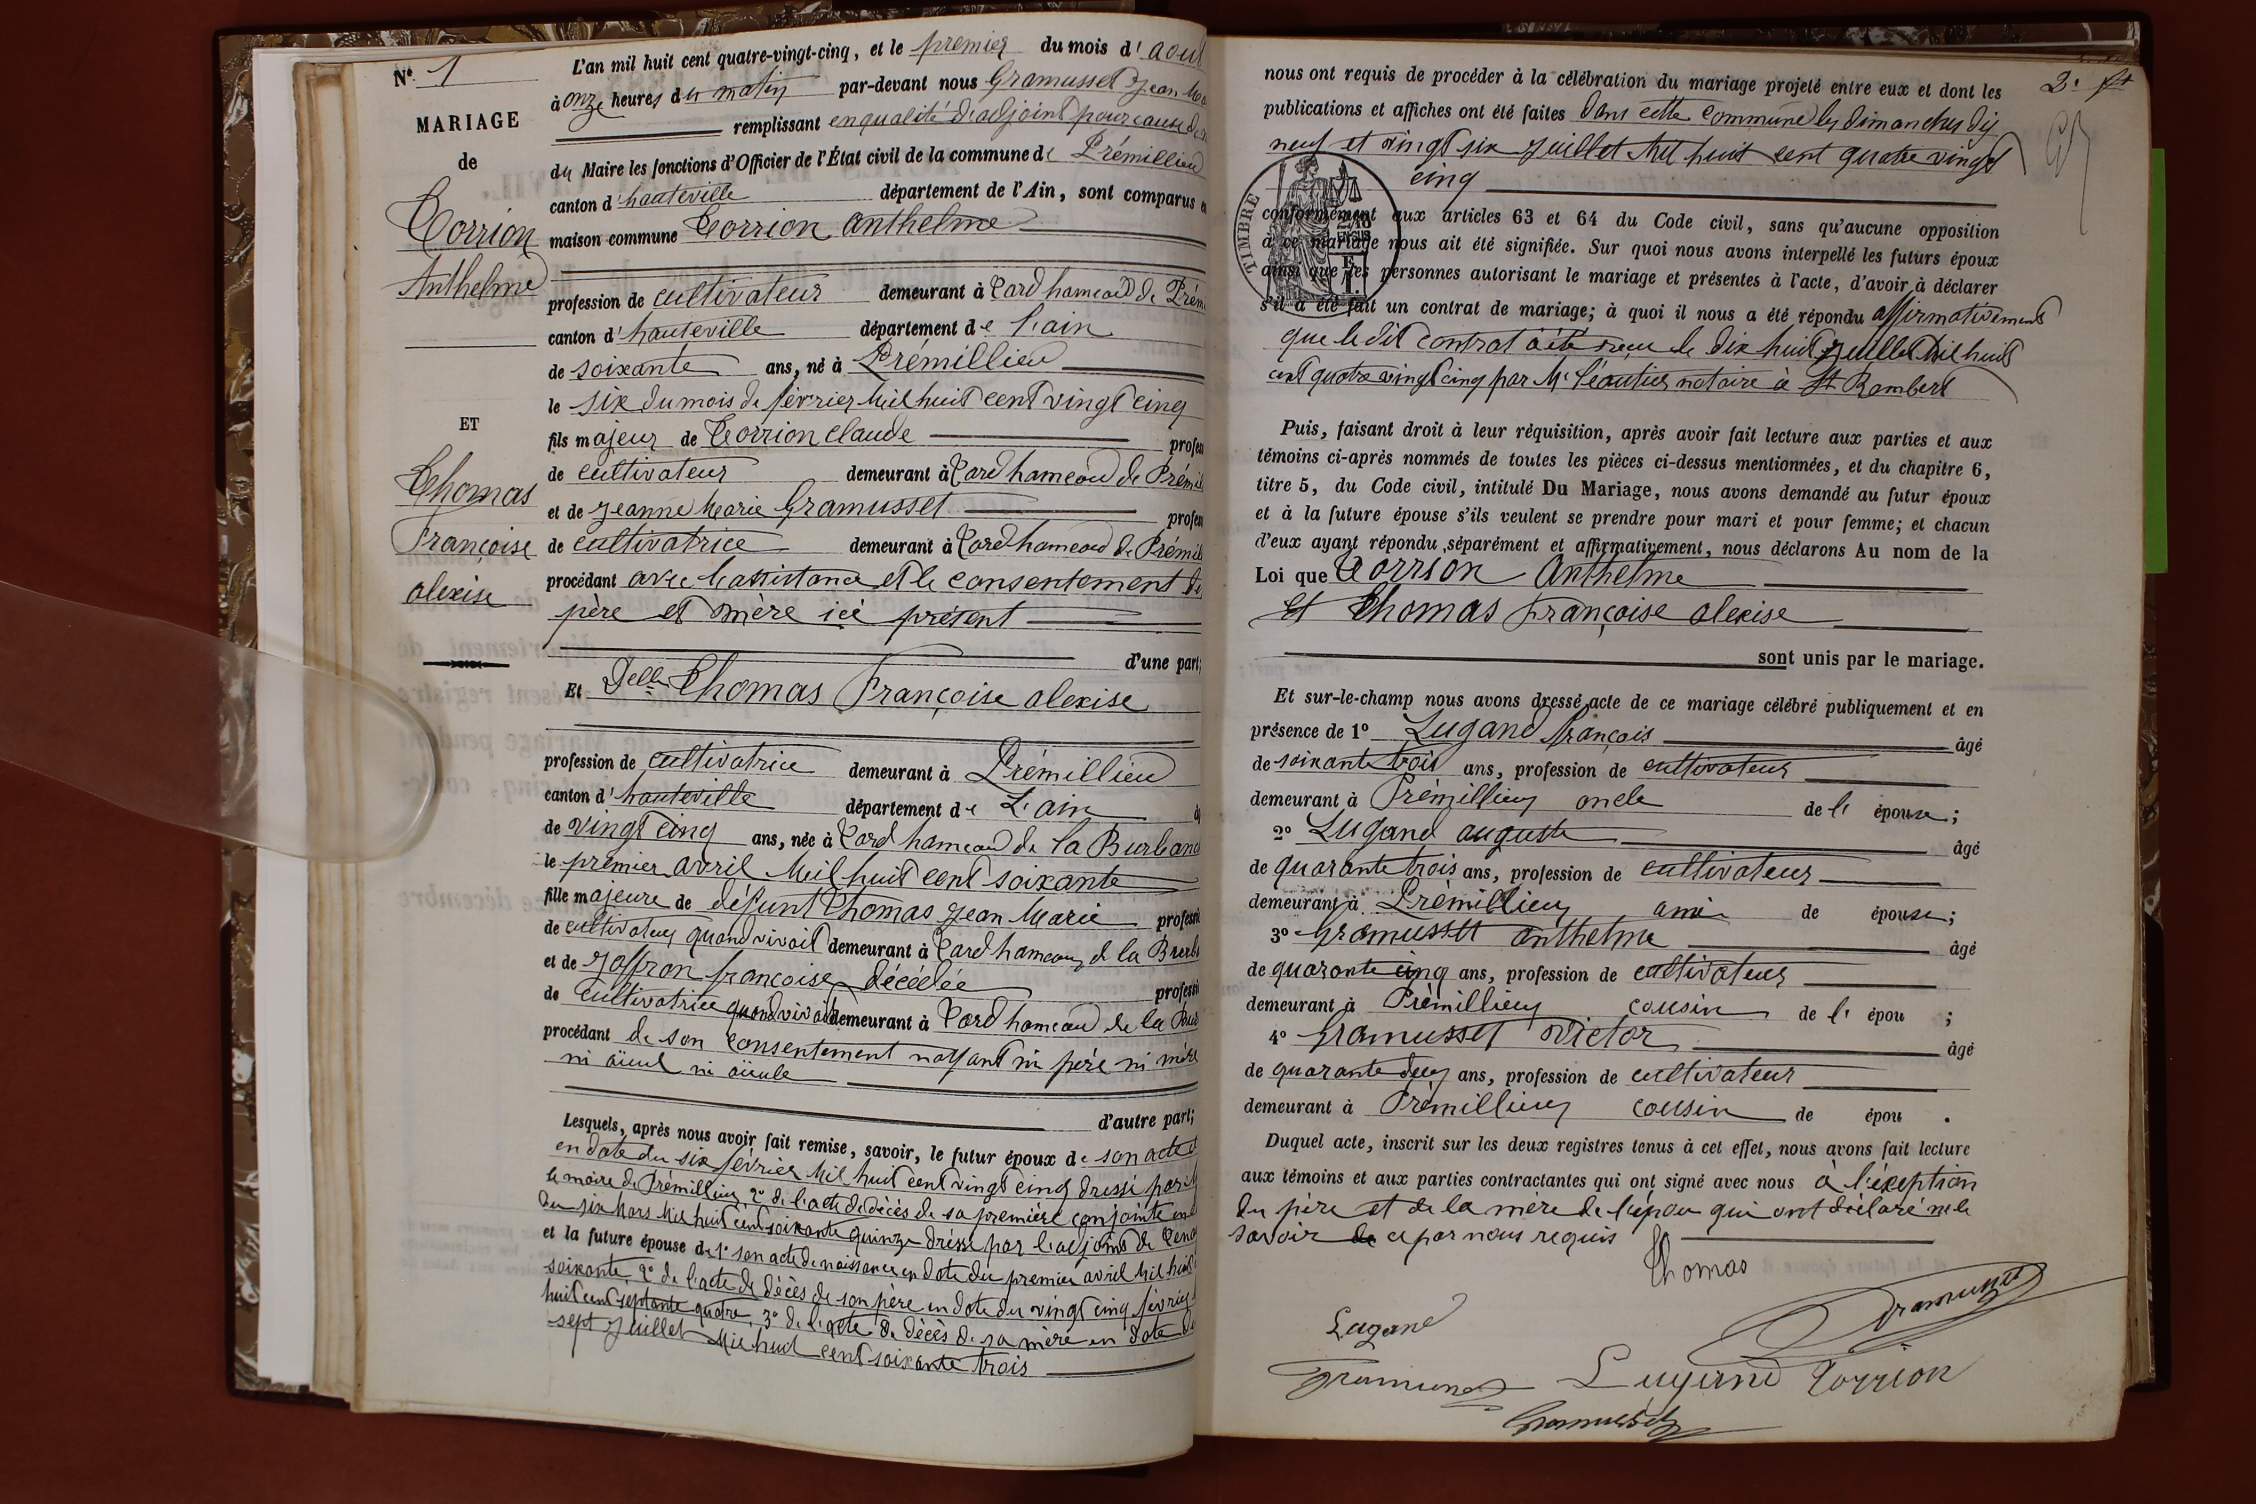 Nº 1
MARIAGE
de
Corrion
Anthelme
ET
Thomas
Françoise
alexise
L'an mil huit cent quatre-vingt-cinq, et le premier du mois d' aout
à onze heures du matin par-devant nous Gramusset Jean
remplissant en qualité d'adjoint pour cause
du Maire les fonctions d'Officier de l'État civil de la commune de Prémillieu
canton d' hauteville département de l'Ain, sont comparus
maison commune Corrion anthelme
profession de cultivateur demeurant à hameau de
canton d' hauteville département de l'ain
de soixante ans, né à Prémillieu
le six du mois de février Mil huit cent vingt cinq
fils majeur de Corrion Claude
de cultivateur demeurant à hameau de
et de jeanne Marie Gramusset
de cultivatrice demeurant à hameau de
procédant avec l'assistance et le consentement de
père et mère ici présent
d'une part;
Et Delle Thomas Françoise alexise
profession de cultivatrice demeurant à Prémillieu
canton d' hauteville département de L'ain
de vingt cinq ans, née à hameau de la
le premier avril Mil huit cent soixante
fille majeure de défunt Thomas Jean Marie
de cultivateur quand vivait demeurant à hameau de la
et de Joffron françoise décédée
de cultivatrice quand vivait demeurant à hameau de la
procédant de son consentement n'ayant ni père ni mère
ni aïeul ni aïeule
d'autre part;
Lesquels, après nous avoir fait remise, savoir, le futur époux de son acte
en date du six février Mil huit cent vingt cinq dressé par
le maire de Prémillieu 2º de l'acte de décès de sa première conjointe en
du six Mars Mil huit cent soixante quinze dressé par l'adjoint de
et la future épouse de 1º son acte de naissance en date du premier avril Mil huit
soixante, 2º de l'acte de décès de son père en date du vingt cinq février
huit cent septante quatre, 3º de l'acte de décès de sa mère en date
sept juillet Mil huit cent soixante trois
2e
nous ont requis de procéder à la célébration du mariage projeté entre eux et dont les
publications et affiches ont été faites dans cette commune les dimanches dix
neuf et vingt six juillet Mil huit cent quatre vingt
cinq
TIMBRE
conformément aux articles 63 et 64 du Code civil, sans qu'aucune opposition
à ce mariage nous ait été signifiée. Sur quoi nous avons interpellé les futurs époux
ainsi que les personnes autorisant le mariage et présentes à l'acte, d'avoir à déclarer
s'il a été fait un contrat de mariage; à quoi il nous a été répondu affirmativement
que le dit contrat a été reçu le dix huit juillet Mil huit
cent quatre vingt cinq par Me Léautier notaire à St Rambert
Puis, faisant droit à leur réquisition, après avoir fait lecture aux parties et aux
témoins ci-après nommés de toutes les pièces ci-dessus mentionnées, et du chapitre 6,
titre 5, du Code civil, intitulé Du Mariage, nous avons demandé au futur époux
et à la future épouse s'ils veulent se prendre pour mari et pour femme; et chacun
d'eux ayant répondu séparément et affirmativement, nous déclarons Au nom de la
Loi que Corrion Anthelme
et Thomas Françoise alexise
sont unis par le mariage.
Et sur-le-champ nous avons dressé acte de ce mariage célébré publiquement et en
présence de 1º Lugand françois âgé
de soixante trois ans, profession de cultivateur
demeurant à Prémillieu oncle de l' épouse;
2º Lugand auguste âgé
de quarante trois ans, profession de cultivateur
demeurant à Prémillieu ami de épouse;
3º Gramusset anthelme âgé
de quarante cinq ans, profession de cultivateur
demeurant à Prémillieu cousin de l' épou ;
4º Gramusset Victor âgé
de quarante deux ans, profession de cultivateur
demeurant à Prémillieu cousin de épou .
Duquel acte, inscrit sur les deux registres tenus à cet effet, nous avons fait lecture
aux témoins et aux parties contractantes qui ont signé avec nous à l'éxeption
du père et de la mère de l'épou qui ont déclaré ne le
savoir de ce par nous requis
Thomas
Gramusset
Lugand
Gramusset
Lugand Corrion
Gramusset